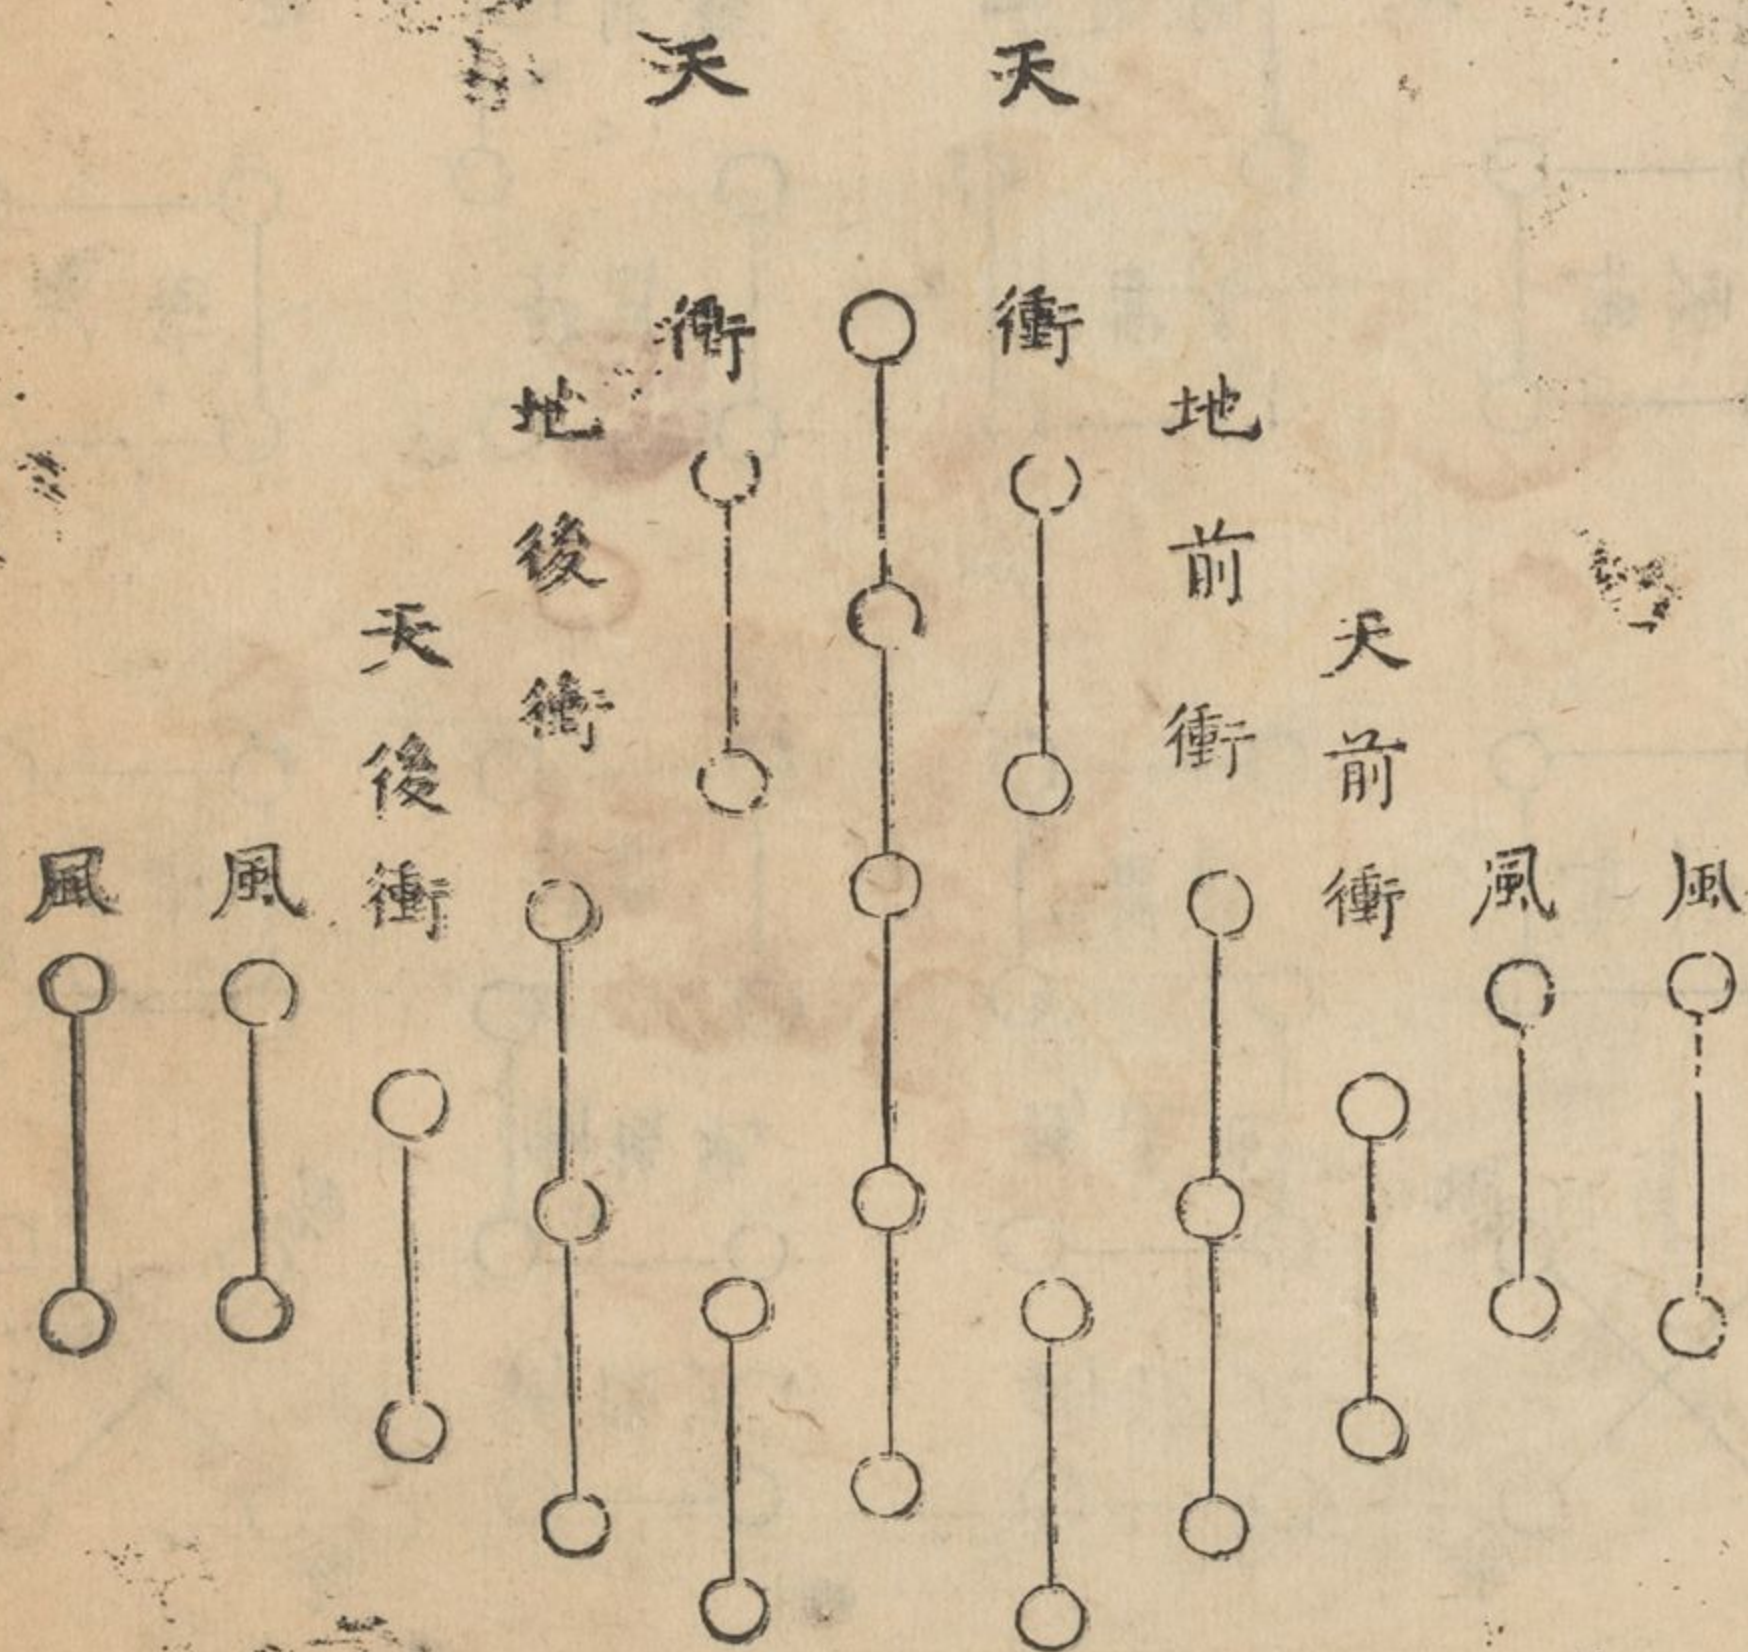 風
風
天前衝
地前衝
天衝
天衝
地後衝
天後衝
風
風